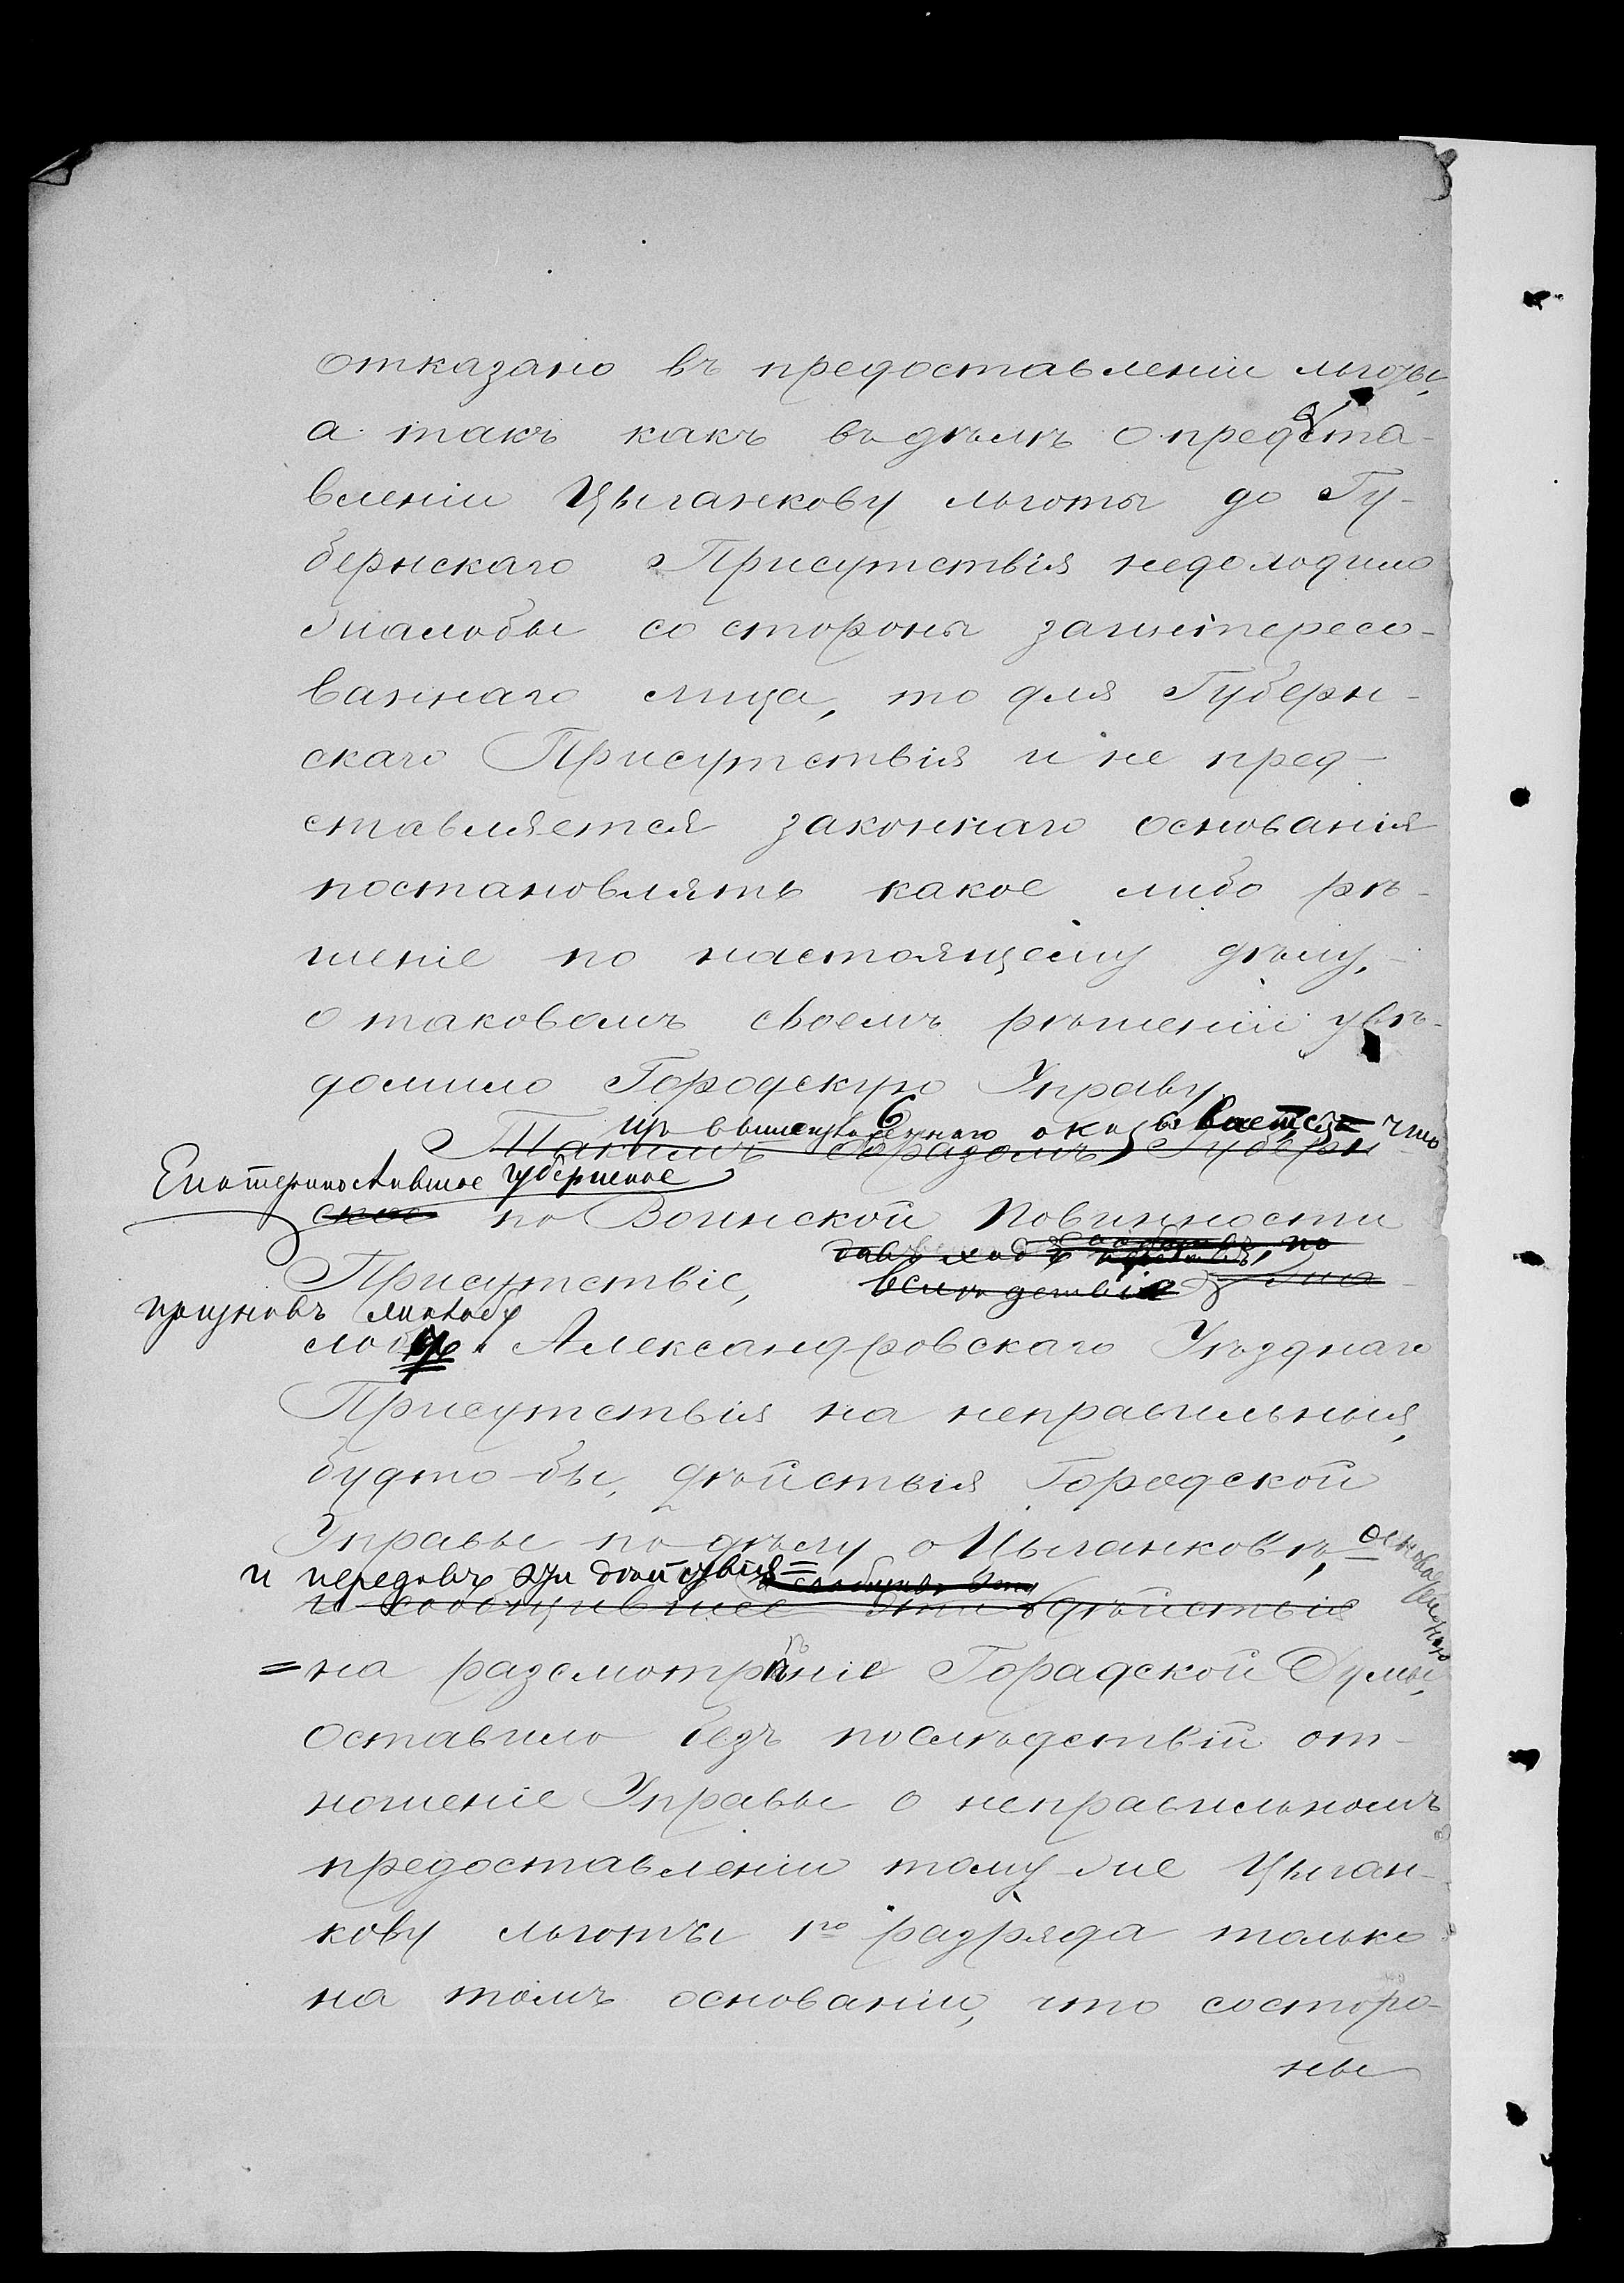 отказано въ предоставленіи льготы,
а такъ какъ въ дѣлѣ о предоста-
вленіи Цыганкову льготы до Гу-
бернскаго Присутствія недоходило
жалобы со стороны заинтересо-
ваннаго лица, то для Губерн-
скаго Присутствія и не пред-
ставляется законнаго основанія
постановлять какое либо рѣ-
шеніе по настоящему дѣлу,-
о таковомъ своемъ рѣшеніи увѣ-
домило Городскую Управу.
Изъ вышеизложеннаго оказывается= что
Такимъ образомъ, Губерн
Екатеринославское губернское
ское по Воинской Повинности
давъ ходъ по
Присутствіе, вслѣдствіе жа-
признавъ жалобу
лобу Александровскаго Уѣзднаго
Присутствія на неправильныя,
будто-бы, дѣйствія Городской
Управы по дѣлу о Цыганковѣ, основательною
и передавъ эти дѣйствія=
и сообщившее эти дѣйствія
=на разсмотрѣніе Городской Думы,
оставило безъ послѣдствій от-
ношеніе Управы о неправильномъ
предоставленіи тому-же Цыган-
кову льготы 1го разряда только
на томъ основаніи, что состоро-
ны